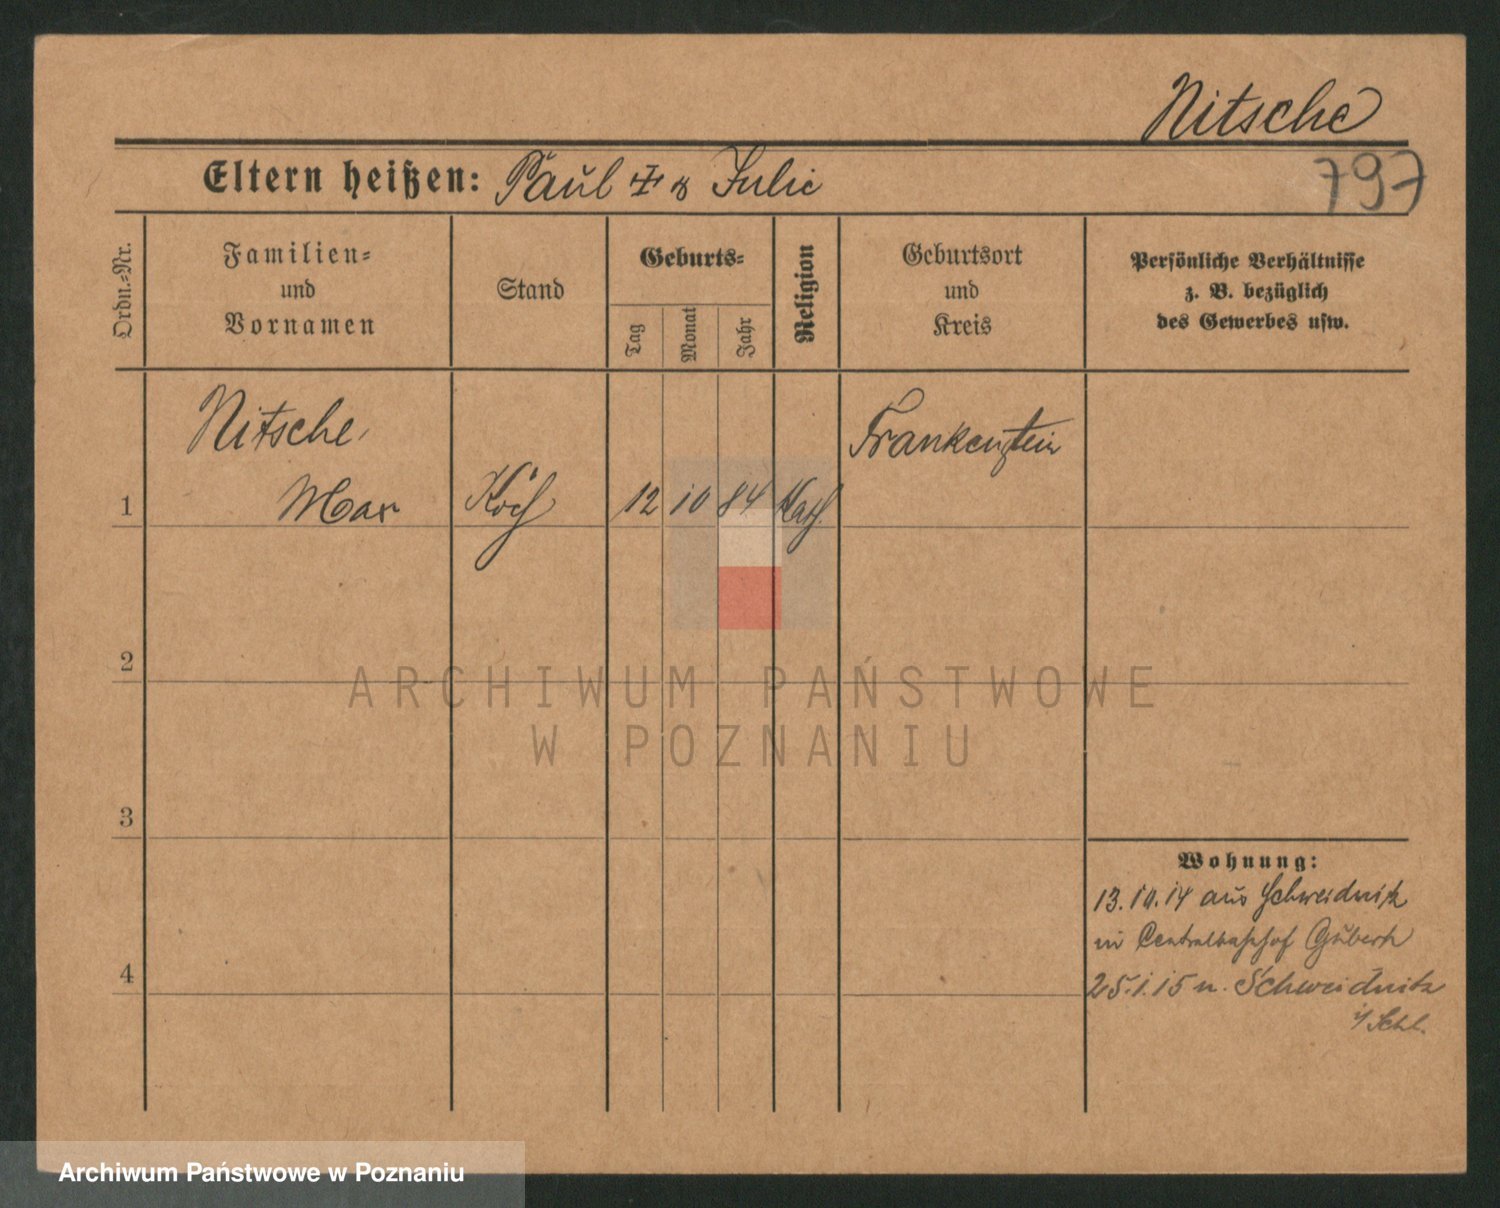 Nitsche
797
Eltern heißen: Paul ‡ & Julie
Ordn.-Nr.
Familien-
und
Vornamen
Stand
Geburts-
Tag
Monat
Jahr
Religion
Geburtsort
und
Kreis
Persönliche Verhältnisse
z. B. bezüglich
des Gewerbes usw.
Nitsche,
Frankenstein
1 Max Koch 12 10 84 Kath.
2
ARCHIWUM PAŃSTWOWE
W POZNANIU
3
Wohnung:
13.10.14 aus Schweidnitz
in Centralbahnhof
4
25.1.15 n. Schweidnitz
i/ Schl.
Archiwum Państwowe w Poznaniu